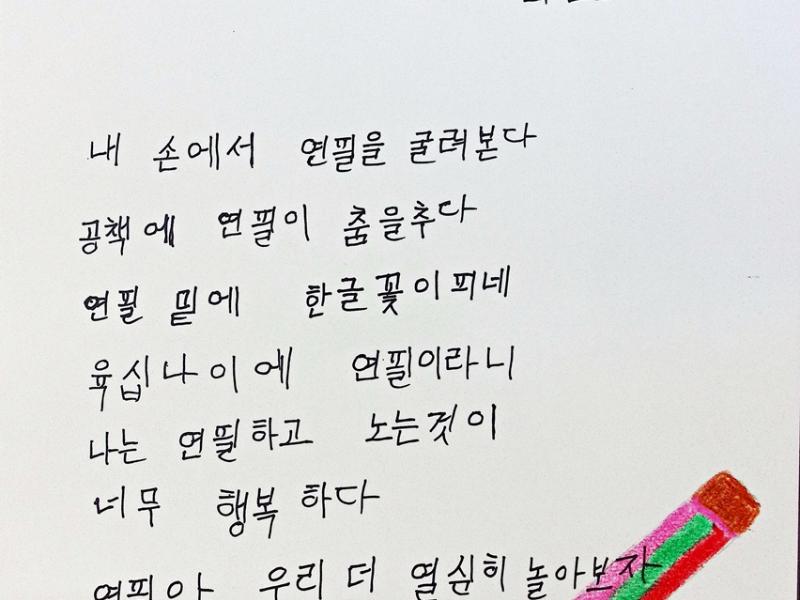 내 손에서 연필을 굴려본다
공책에 연필이 춤을추다
연필 밑에 한글꽃이피네
육십나이에 연필이라니
나는 연필하고 노는것이
너무 행복하다
연필아 우리 더 열심히 놀아보자